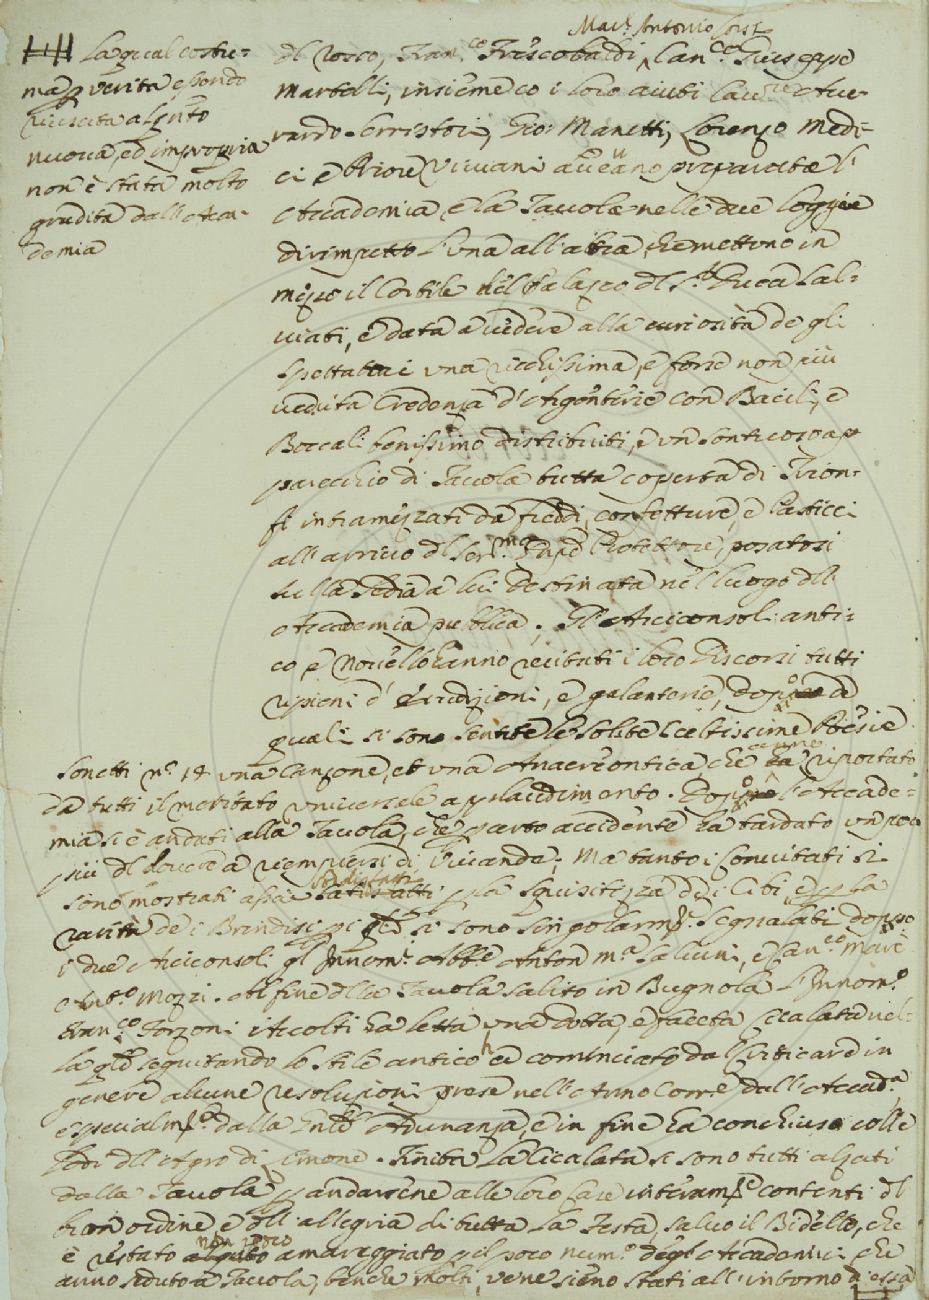 Marc. Antonio
del Rosso, Fran.co Frescobaldi, Can.co Giuseppe
Martelli, insieme co i loro aiuti Cav.re Ave-
rardo Serristori, Gio: Manetti, Lorenzo Medi-
ci e Priore Viviani aveano preparata l'
Accademia, e la Tavola nelle due loggie
dirimpetto l'una all'altra, che mettono in
mezzo il Cortile del Palazzo del S.r Duca Sal-
viati, e data a vedere alla curiosità de gli
spettatori una ricchissima, e forse non più
veduta Credenza d'Argenterie con Bacili, e
Boccali benissimo distribuiti, e un sontuoso ap
parecchio di Tavola tutta coperta di Trion-
fi intramezzati da freddi, confetture, e Pasticci
all'arrivo del Ser.mo Pnpe Protettore, posatosi
sulla Sedia a lui destinata nel luogo dell'
Accademia pubblica, Gl'Arciconsoli anti-
co e Novello hanno recitati i loro Discorsi tutti
ripieni d'erudizioni, e galanterie, dopo de
quali si sono sentite le solite sceltissime Poesie
Sonetti n.o 18 una Canzone, et una Anacreontica che anno riportato
da tutti il meritato universale applaudimento. Dopo l'Accade-
mia si è andati alla Tavola, che per certo accidente ha tardato un poco
più del dovere a riempiersi di vivande; Ma tanto i Convitati si
sono mostrati assai sodisfatti satisfatti p la squisitezza dei Cibi, e p la
rarità de i Brindisi, p i qli si sono singolarm.te segnalati doppo
i due Arciconsoli gl'Innom.ti Abb.e Anton M.a Salvini, e Can.co Marc
Ant.o Mozzi. Al fine della Tavola salito in Bugnola l'Innom.o
Fran.co Forzoni Accolti ha letta una dotta, e faceta Cicalata nel-
la qle seguitando lo stile antico ha cominciato dal Criticare in
genere alcune resoluzioni prese nell'Anno Corr.e dall'Accad.a
e specialm.te dalla Adunanza, e in fine ha conchiuso colle
lodi dell'Agro di Limone. Finita la Cicalata si sono tutti alzati
dalla Tavola p andarsene alle loro Case interam.te contenti del
buon ordine, e dell'allegria di tutta la Festa, salvo il Bidello, che
è restato non poco amareggiato pel poco num.o degl'Accademici che
anno seduto a Tavola, benche molti ve ne sieno stati all'intorno d'essa
La qual costu-
ma p verita essendo
riuscita alq.to
nuova, ed impropria
non è stata molto
gradita dall'Acca-
demia